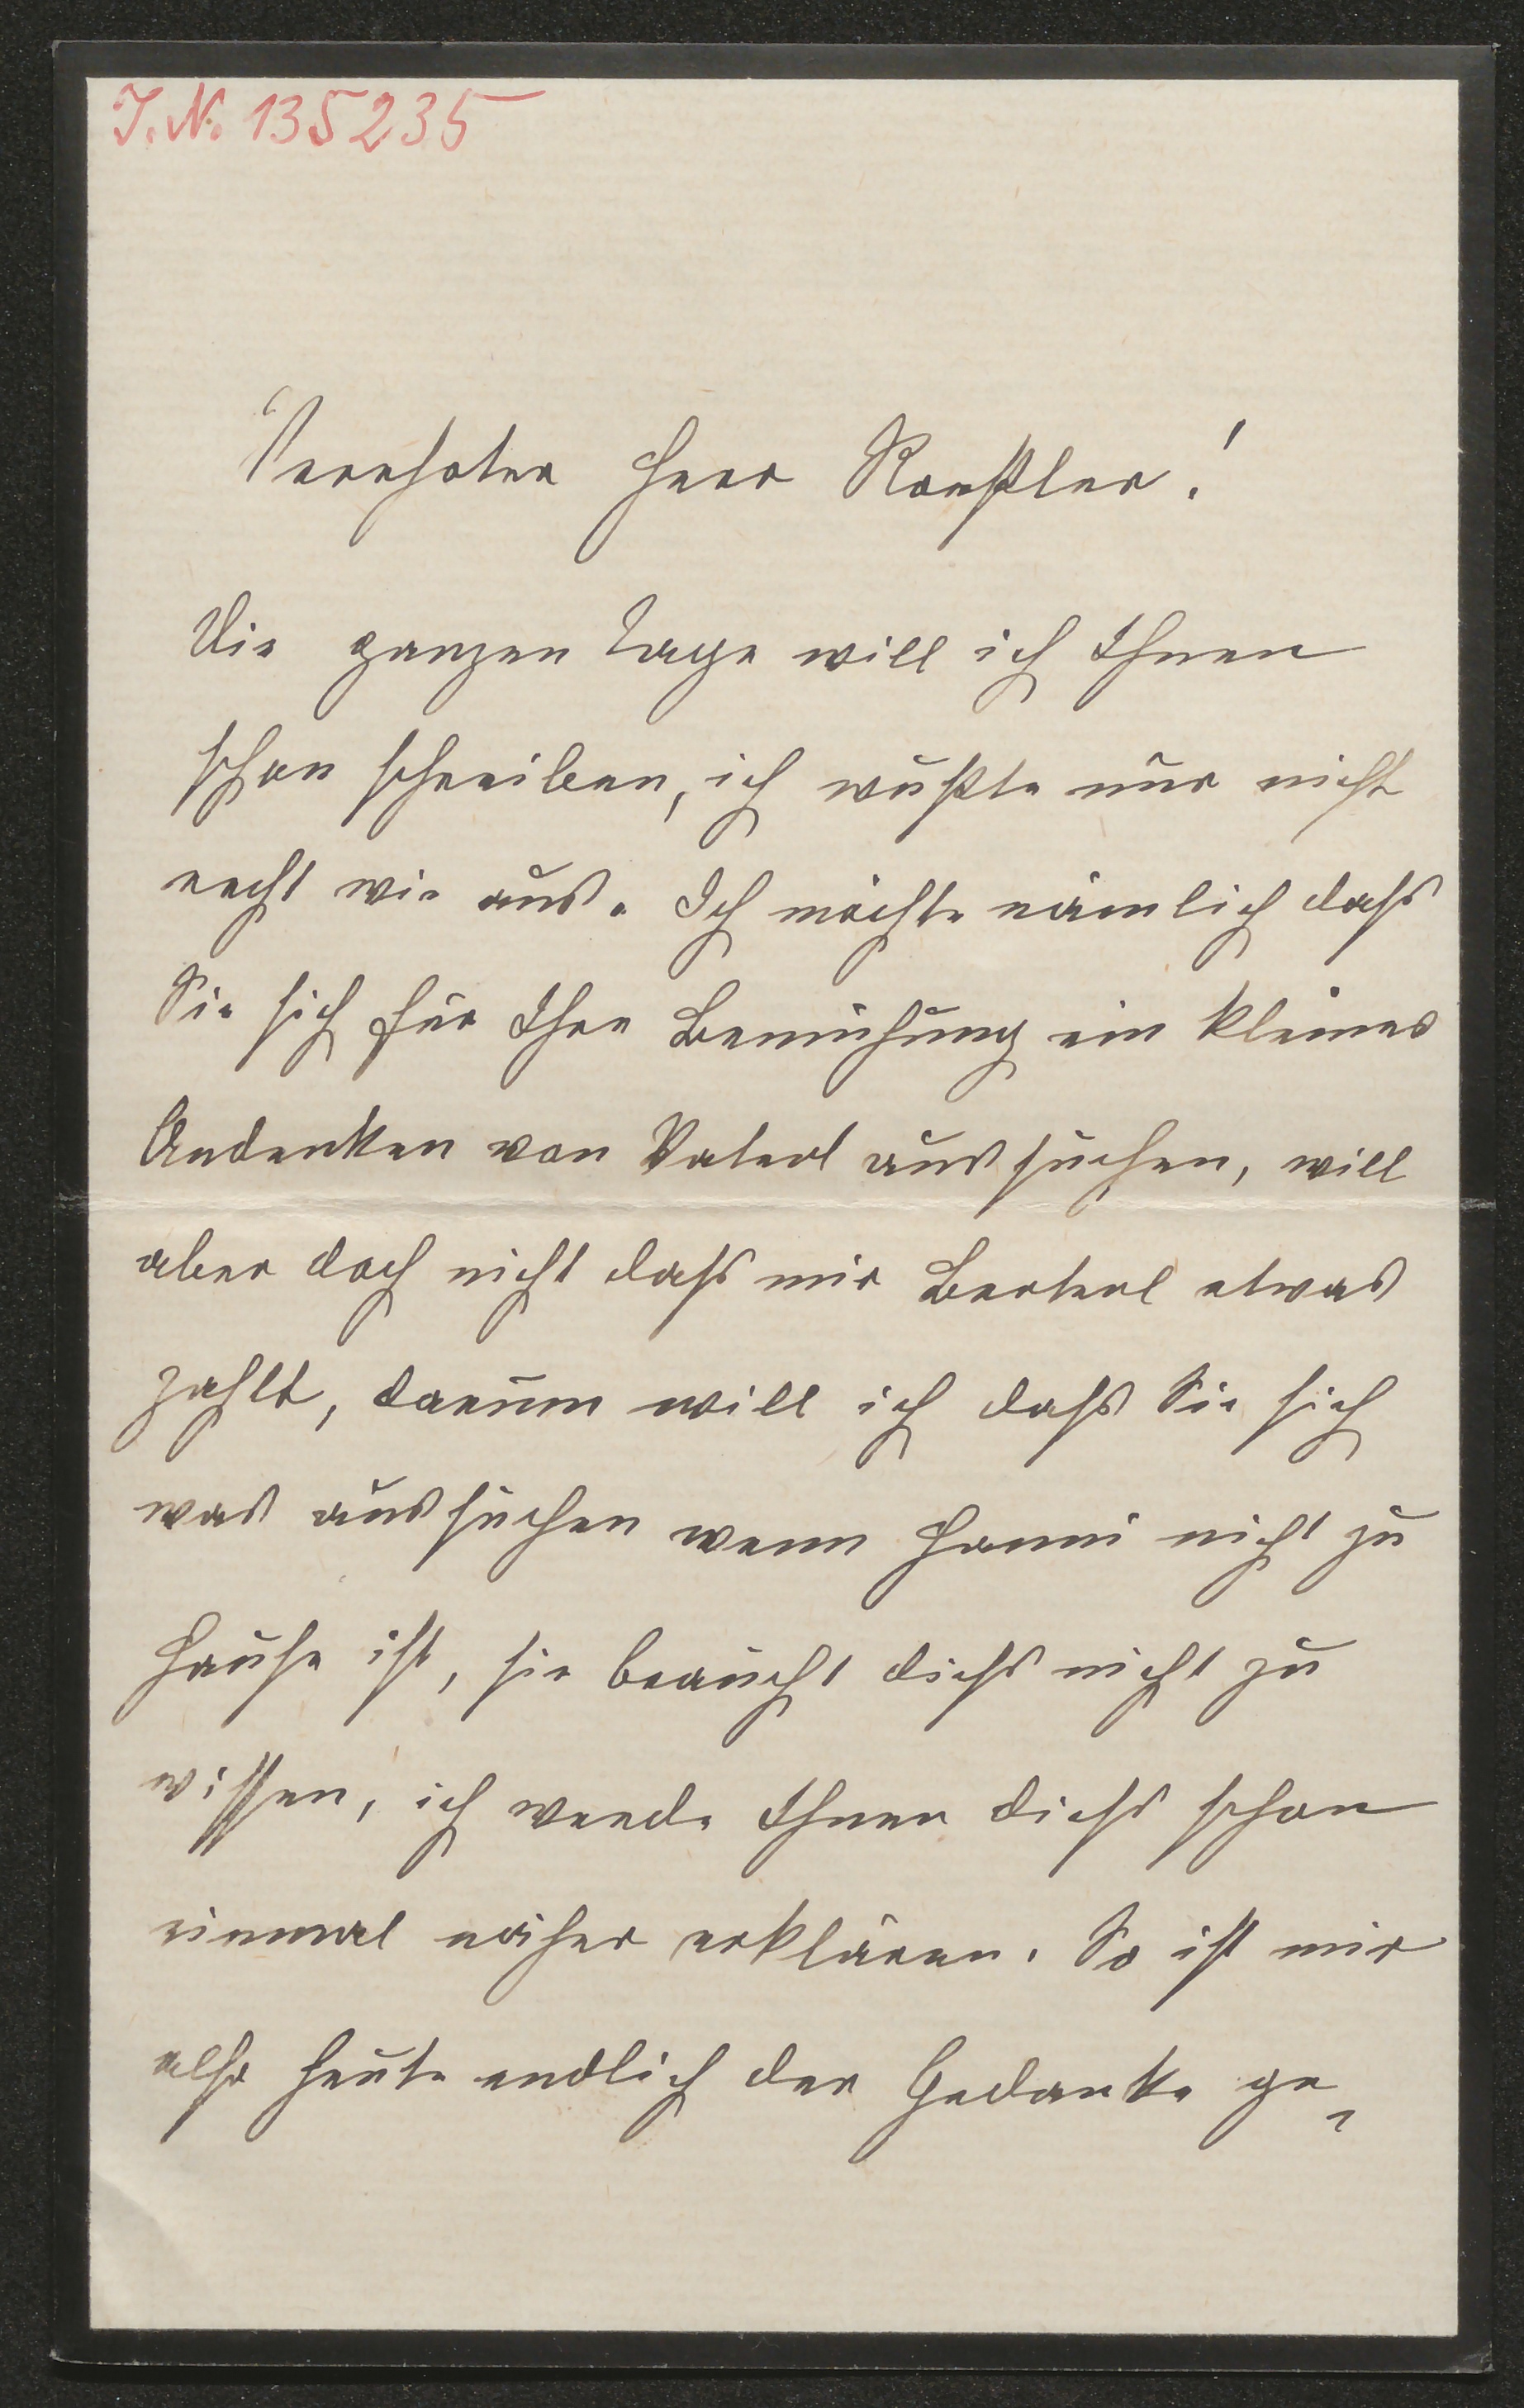 J. N. 135235
Verehrter Herr Roeßler!
Die ganzen Tage will ich Ihnen
schon schreiben, ich wußte nur nicht
recht wie aus. Ich möchte nämlich dass
Sie sich für Ihre Bemühung ein kleines
Andenken von Vaterl aussuchen, will
aber doch nicht dass mir Berterl etwas
zahlt, darum will ich dass Sie sich
was aussuchen wenn Hanni nicht zu
Hause ist, sie braucht diess nicht zu
wissen, ich werde Ihnen diess schon
einmal näher erklären. So ist mir
also heute endlich der Gedanke ge-